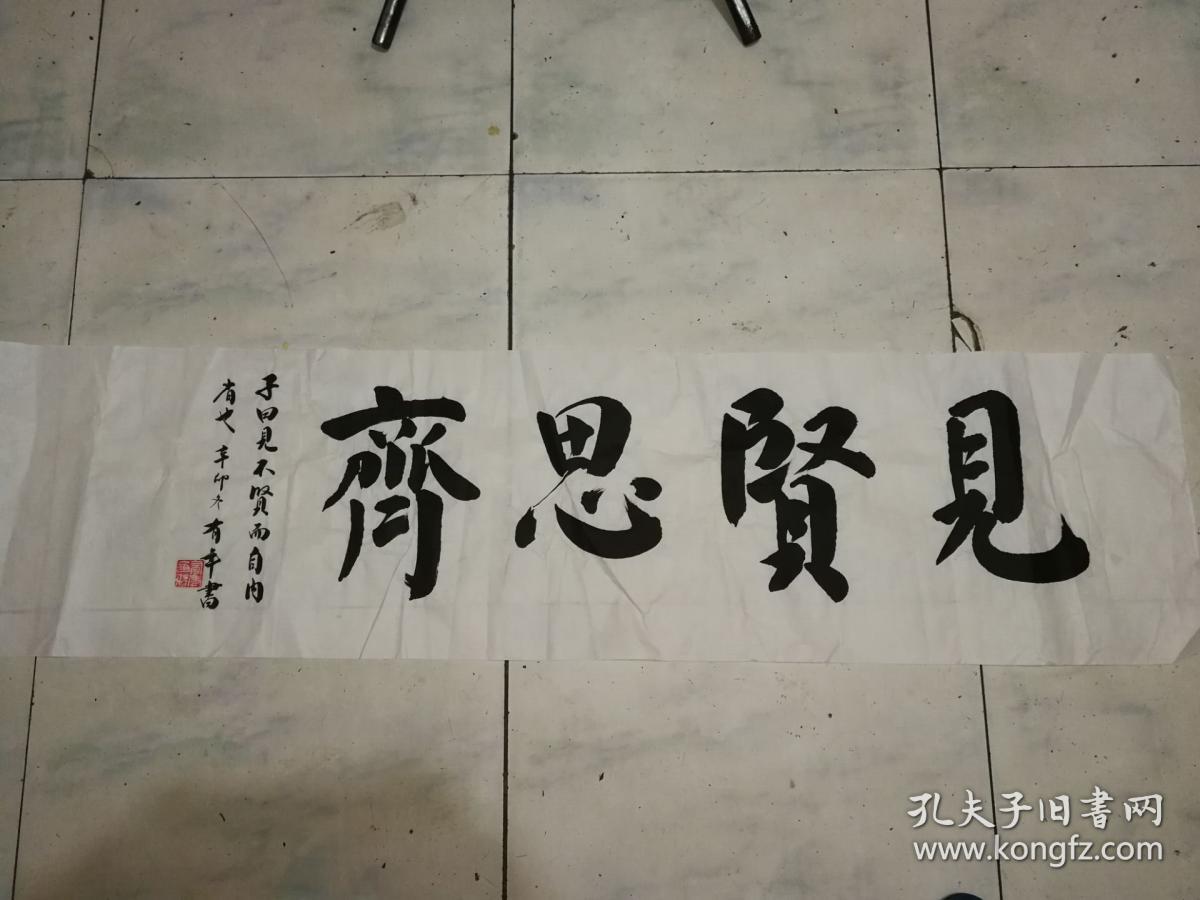 見賢思齊
子曰見不賢而自内
省也 辛卯冬有年書
孔夫子旧書网
www.kongfz.com